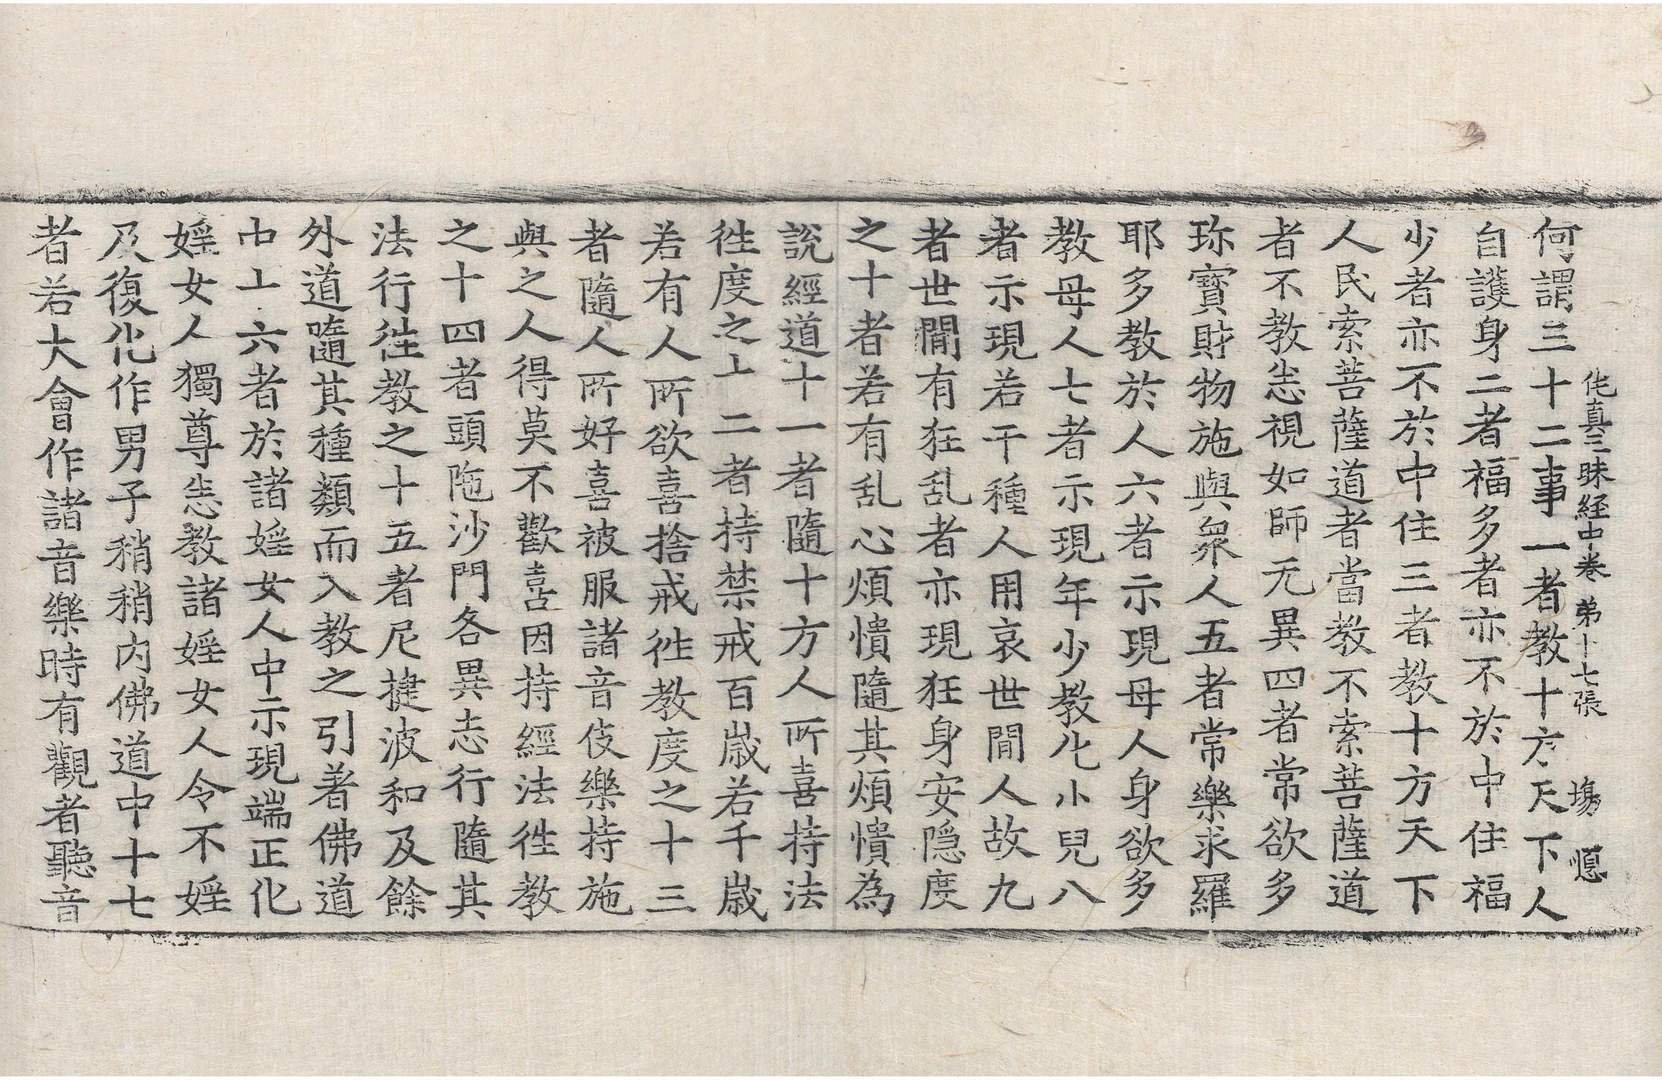 佗真三昧経中卷 第十七張 塲 㥯
何謂三十二事一者教十方天下人
自護身二者福多者亦不於中住福
少者亦不於中住三者教十方天下
人民索菩薩道者當教不索菩薩道
者不教悉視如師无異四者常欲多
珎寳財物施與衆人五者常樂求羅
耶多教於人六者示現母人身欲多
教母人七者示現年少教化小兒八
者示現若干種人用哀世間人故九
者世間有狂乱者亦現狂身安隐度
之十者若有乱心煩憒隨其煩憒為
說經道十一者隨十方人所喜持法
徃度之十二者持禁戒百歳若千歳
若有人所欲喜捨戒徃教度之十三
者隨人所好喜被服諸音伎樂持施
與之人得莫不歡喜因持經法徃教
之十四者頭陁沙門各異志行隨其
法行徃教之十五者尼揵波和及餘
外道隨其種類而入教之引著佛道
中十六者於諸婬女人中示現端正化
婬女人獨尊悉教諸婬女人令不婬
及復化作男子稍稍内佛道中十七
者若大會作諸音樂時有觀者聽音